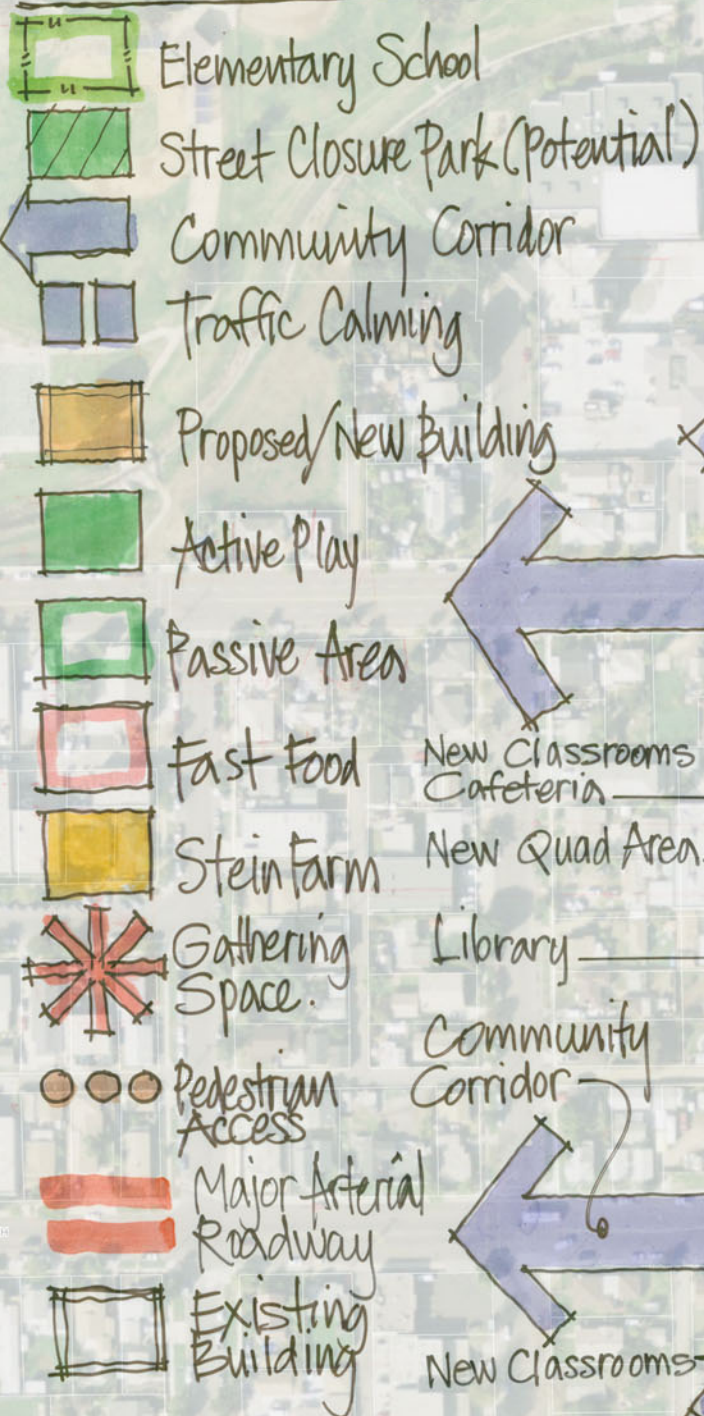 Elementary School
Street Closure Park (Potential)
Community Corridor
Traffic Calming
Proposed/New Building
Active Play
Passive Area
Fast Food
Stein Farm
Gathering
Space.
Pedestrian
Access
Major Arterial
Roadway
Existing
Building
New Classrooms
Cafeteria
New Quad Area
Library
Community
Corridor
New Classrooms